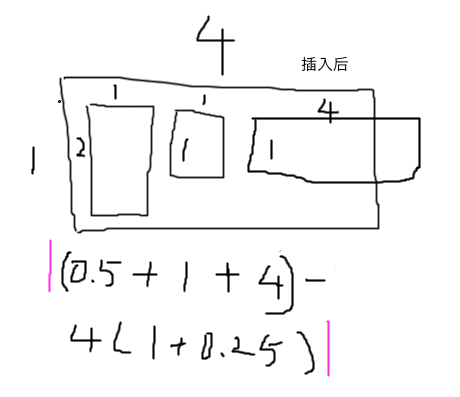 4
插入后
1 1 4
1 2 1 1
|(0.5 + 1 + 4) −
4(1 + 0.25)|